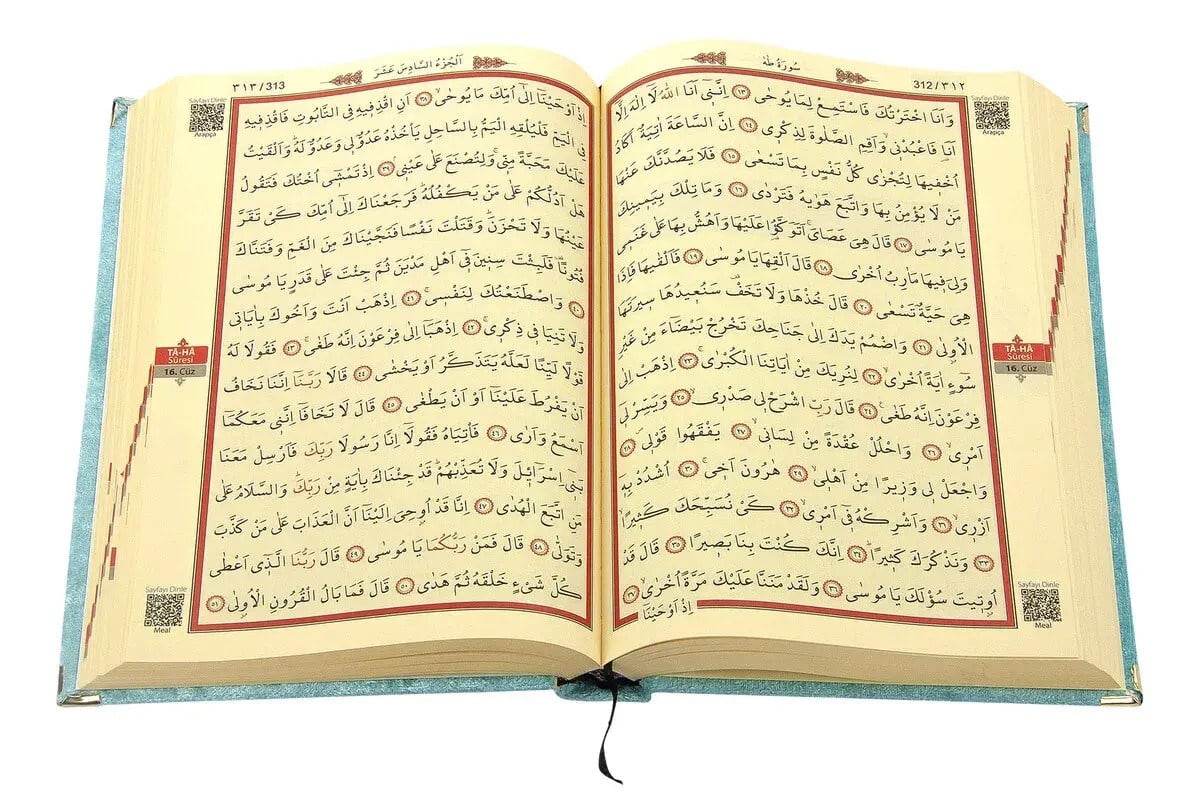 312/٣١٢
سُورَةُ طٰهٰ
وَاَنَا اخْتَرْتُكَ فَاسْتَمِعْ لِمَا يُوحٰى ﴿١٣﴾ اِنَّن۪ٓي اَنَا اللّٰهُ لَٓا اِلٰهَ اِلَّٓا
اَنَا۬ فَاعْبُدْن۪يۙ وَاَقِمِ الصَّلٰوةَ لِذِكْر۪ي ﴿١٤﴾ اِنَّ السَّاعَةَ اٰتِيَةٌ اَكَادُ
اُخْف۪يهَا لِتُجْزٰى كُلُّ نَفْسٍ بِمَا تَسْعٰى ﴿١٥﴾ فَلَا يَصُدَّنَّكَ عَنْهَا
مَنْ لَا يُؤْمِنُ بِهَا وَاتَّبَعَ هَوٰيهُ فَتَرْدٰى ﴿١٦﴾ وَمَا تِلْكَ بِيَم۪ينِكَ
يَا مُوسٰى ﴿١٧﴾ قَالَ هِيَ عَصَايَۚ اَتَوَكَّؤُ۬ا عَلَيْهَا وَاَهُشُّ بِهَا عَلٰى غَنَم۪ي
وَلِيَ ف۪يهَا مَاٰرِبُ اُخْرٰى ﴿١٨﴾ قَالَ اَلْقِهَا يَا مُوسٰى ﴿١٩﴾ فَاَلْقٰيهَا فَاِذَا
هِيَ حَيَّةٌ تَسْعٰى ﴿٢٠﴾ قَالَ خُذْهَا وَلَا تَخَفْ۠ سَنُع۪يدُهَا س۪يرَتَهَا
الْاُو۫لٰى ﴿٢١﴾ وَاضْمُمْ يَدَكَ اِلٰى جَنَاحِكَ تَخْرُجْ بَيْضَٓاءَ مِنْ غَيْرِ
سُٓوءٍ اٰيَةً اُخْرٰىۙ ﴿٢٢﴾ لِنُرِيَكَ مِنْ اٰيَاتِنَا الْكُبْرٰىۚ ﴿٢٣﴾ اِذْهَبْ اِلٰى
فِرْعَوْنَ اِنَّهُ طَغٰى۟ ﴿٢٤﴾ قَالَ رَبِّ اشْرَحْ ل۪ي صَدْر۪يۙ ﴿٢٥﴾ وَيَسِّرْ ل۪ٓي
اَمْر۪يۙ ﴿٢٦﴾ وَاحْلُلْ عُقْدَةً مِنْ لِسَان۪يۙ ﴿٢٧﴾ يَفْقَهُوا قَوْل۪يۖ ﴿٢٨﴾
وَاجْعَلْ ل۪ي وَز۪يرًا مِنْ اَهْل۪يۙ ﴿٢٩﴾ هٰرُونَ اَخ۪يۚ ﴿٣٠﴾ اُشْدُدْ بِه۪ٓ
اَزْر۪يۙ ﴿٣١﴾ وَاَشْرِكْهُ ف۪ٓي اَمْر۪يۙ ﴿٣٢﴾ كَيْ نُسَبِّحَكَ كَث۪يرًاۙ
﴿٣٣﴾ وَنَذْكُرَكَ كَث۪يرًاۜ ﴿٣٤﴾ اِنَّكَ كُنْتَ بِنَا بَص۪يرًا ﴿٣٥﴾ قَالَ قَدْ
اُو۫ت۪يتَ سُؤْلَكَ يَا مُوسٰى ﴿٣٦﴾ وَلَقَدْ مَنَنَّا عَلَيْكَ مَرَّةً اُخْرٰىۙ ﴿٣٧﴾
اِذْ اَوْحَيْنَٓا
Sayfayı Dinle
Arapça
TÂ-HÂ
Sûresi
16. Cüz
Sayfayı Dinle
Meal
٣١٣/313
اَلْجُزْءُ السَّادِسَ عَشَرَ
اِذْ اَوْحَيْنَٓا اِلٰٓى اُمِّكَ مَا يُوحٰىۙ ﴿٣٨﴾ اَنِ اقْذِف۪يهِ فِي التَّابُوتِ فَاقْذِف۪يهِ
فِي الْيَمِّ فَلْيُلْقِهِ الْيَمُّ بِالسَّاحِلِ يَأْخُذْهُ عَدُوٌّ ل۪ي وَعَدُوٌّ لَهُۜ وَاَلْقَيْتُ
عَلَيْكَ مَحَبَّةً مِنّ۪يۚ وَلِتُصْنَعَ عَلٰى عَيْن۪يۢ ﴿٣٩﴾ اِذْ تَمْش۪ٓي اُخْتُكَ فَتَقُولُ
هَلْ اَدُلُّكُمْ عَلٰى مَنْ يَكْفُلُهُۜ فَرَجَعْنَاكَ اِلٰٓى اُمِّكَ كَيْ تَقَرَّ
عَيْنُهَا وَلَا تَحْزَنَۜ وَقَتَلْتَ نَفْسًا فَنَجَّيْنَاكَ مِنَ الْغَمِّ وَفَتَنَّاكَ
فُتُونًا۠ فَلَبِثْتَ سِن۪ينَ ف۪ٓي اَهْلِ مَدْيَنَ ثُمَّ جِئْتَ عَلٰى قَدَرٍ يَا مُوسٰى
﴿٤٠﴾ وَاصْطَنَعْتُكَ لِنَفْس۪يۚ ﴿٤١﴾ اِذْهَبْ اَنْتَ وَاَخُوكَ بِاٰيَات۪ي
وَلَا تَنِيَا ف۪ي ذِكْر۪يۚ ﴿٤٢﴾ اِذْهَبَٓا اِلٰى فِرْعَوْنَ اِنَّهُ طَغٰىۚ ﴿٤٣﴾ فَقُولَا لَهُ
قَوْلًا لَيِّنًا لَعَلَّهُ يَتَذَكَّرُ اَوْ يَخْشٰى ﴿٤٤﴾ قَالَا رَبَّنَٓا اِنَّنَا نَخَافُ
اَنْ يَفْرُطَ عَلَيْنَٓا اَوْ اَنْ يَطْغٰى ﴿٤٥﴾ قَالَ لَا تَخَافَٓا اِنَّن۪ي مَعَكُمَٓا
اَسْمَعُ وَاَرٰى ﴿٤٦﴾ فَأْتِيَاهُ فَقُولَٓا اِنَّا رَسُولَا رَبِّكَ فَاَرْسِلْ مَعَنَا
بَن۪ٓي اِسْرَٓائ۪لَ وَلَا تُعَذِّبْهُمْۜ قَدْ جِئْنَاكَ بِاٰيَةٍ مِنْ رَبِّكَۜ وَالسَّلَامُ عَلٰى
مَنِ اتَّبَعَ الْهُدٰى ﴿٤٧﴾ اِنَّا قَدْ اُو۫حِيَ اِلَيْنَٓا اَنَّ الْعَذَابَ عَلٰى مَنْ كَذَّبَ
وَتَوَلّٰى ﴿٤٨﴾ قَالَ فَمَنْ رَبُّكُمَا يَا مُوسٰى ﴿٤٩﴾ قَالَ رَبُّنَا الَّذ۪ٓي اَعْطٰى
كُلَّ شَيْءٍ خَلْقَهُ ثُمَّ هَدٰى ﴿٥٠﴾ قَالَ فَمَا بَالُ الْقُرُونِ الْاُو۫لٰى ﴿٥١﴾
Sayfayı Dinle
Arapça
TÂ-HÂ
Sûresi
16. Cüz
Sayfayı Dinle
Meal